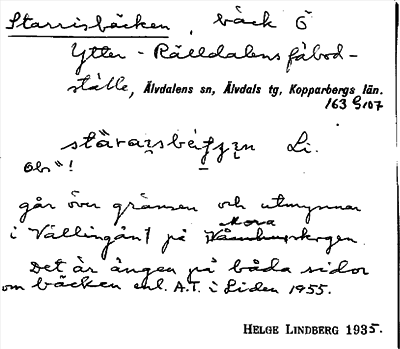 Starrisbäcken, bäck Ö
Ytter-Rälldalens fäbod-
ställe, Älvdalens sn, Älvdals tg, Kopparbergs län.
163 G:07
Li.
obs "!
går över gränsen och utmynnar
Mora
i Vällingån på
Det är ängen på båda sidor
om bäcken enl. A.T. i Liden 1955.
HELGE LINDBERG 1935.